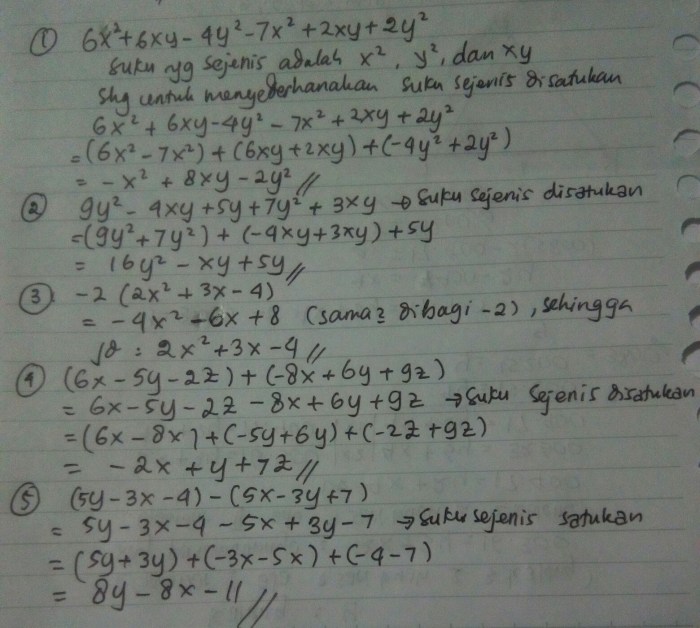 ① 6x² + 6xy - 4y² - 7x² + 2xy + 2y²
suku yg sejenis adalah x², y², dan xy
shg untuk menyederhanakan suku sejenis disatukan
6x² + 6xy - 4y² - 7x² + 2xy + 2y²
= (6x² - 7x²) + (6xy + 2xy) + (-4y² + 2y²)
= - x² + 8xy - 2y² //
② 9y² - 4xy + 5y + 7y² + 3xy → suku sejenis disatukan
= (9y² + 7y²) + (-4xy + 3xy) + 5y
= 16y² - xy + 5y //
③ -2 (2x² + 3x - 4)
= -4x² - 6x + 8 (sama2 dibagi -2), sehingga
jd : 2x² + 3x - 4 //
④ (6x - 5y - 2z) + (-8x + 6y + 9z)
= 6x - 5y - 2z - 8x + 6y + 9z → suku sejenis disatukan
= (6x - 8x) + (-5y + 6y) + (-2z + 9z)
= - 2x + y + 7z //
⑤ (5y - 3x - 4) - (5x - 3y + 7)
= 5y - 3x - 4 - 5x + 3y - 7 → suku sejenis satukan
= (5y + 3y) + (-3x - 5x) + (-4 - 7)
= 8y - 8x - 11 //